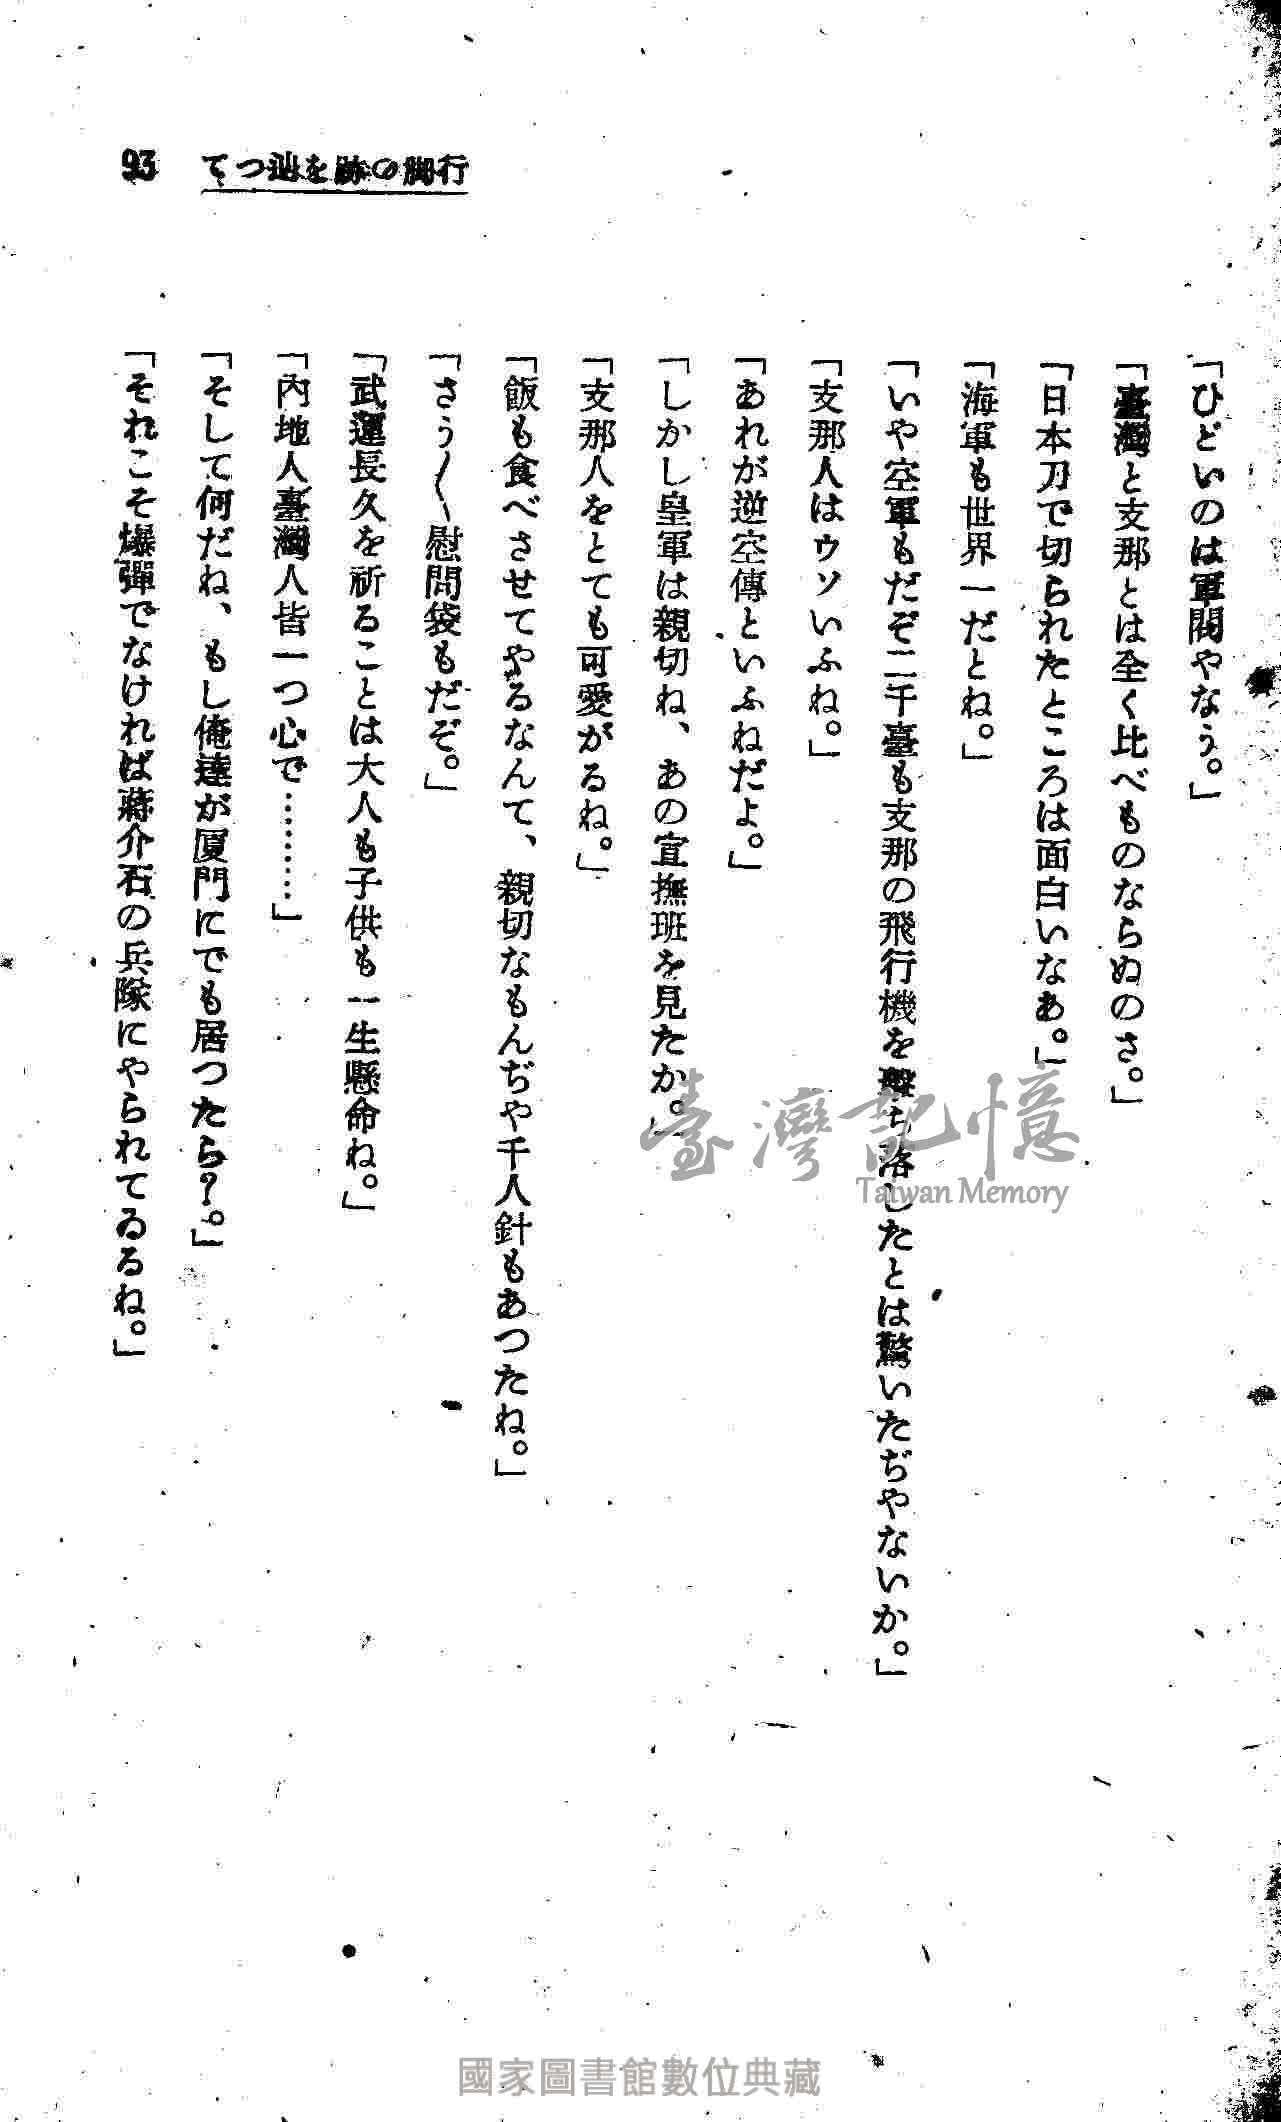 93 てつ辿を跡の脚行
「ひどいのは軍閥やなう。」
「臺灣と支那とは全く比べものならぬのさ。」
「日本刀で切られたところは面白いなあ。」
「海軍も世界一だとね。」
「いや空軍もだぞ二千臺も支那の飛行機を擊ち落したとは驚いたぢやないか。」
「支那人はウソいふね。」
「あれが逆空傳といふねだよ。」
「しかし皇軍は親切ね、あの宣撫班を見たか。」
「支那人をとても可愛がるね。」
「飯も食べさせてやるなんて、親切なもんぢや千人針もあつたね。」
「さう〱慰問袋もだぞ。」
「武運長久を祈ることは大人も子供も一生懸命ね。」
「內地人臺灣人皆一つ心で………」
「そして何だね、もし俺達が厦門にでも居つたら?。」
「それこそ爆彈でなければ蔣介石の兵隊にやられてゐるね。」
臺灣記憶
Taiwan Memory
國家圖書館數位典藏